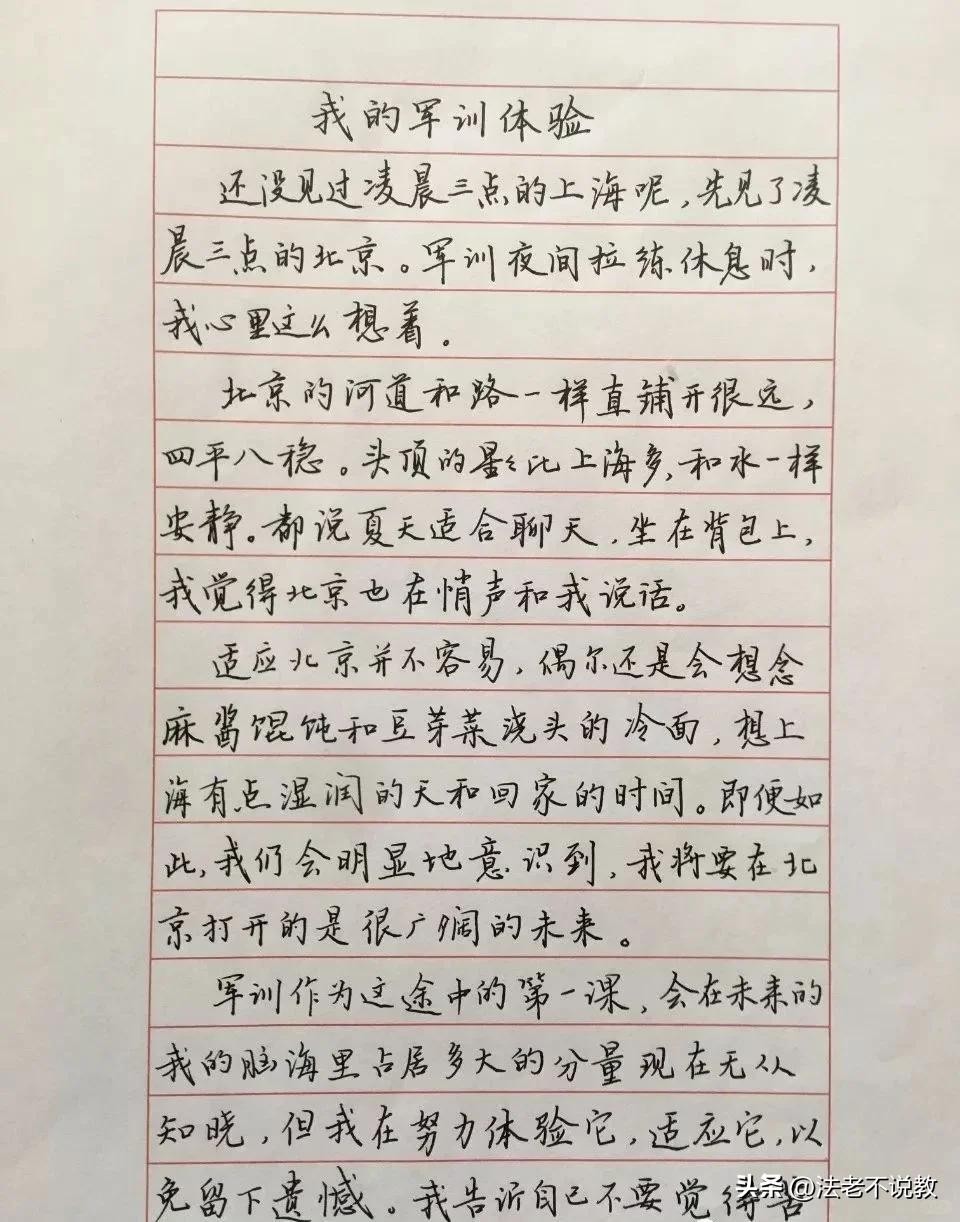 我的军训体验
还没见过凌晨三点的上海呢,先见了凌
晨三点的北京。军训夜间拉练休息时,
我心里这么想着。
北京的河道和路一样直铺开很远,
四平八稳。头顶的影比上海多,和水一样
安静。都说夏天适合聊天,坐在背包上,
我觉得北京也在悄声和我说话。
适应北京并不容易,偶尔还是会想念
麻酱馄饨和豆芽菜浇头的冷面,想上
海有点湿润的天和回家的时间。即便如
此,我们会明显地意识到,我将要在北
京打开的是很广阔的未来。
军训作为这途中的第一课,会在未来的
我的脑海里占居多大的分量现在无从
知晓,但我在努力体验它,适应它,以
免留下遗憾。我告诉自己不要觉得苦
头条@法老不说教